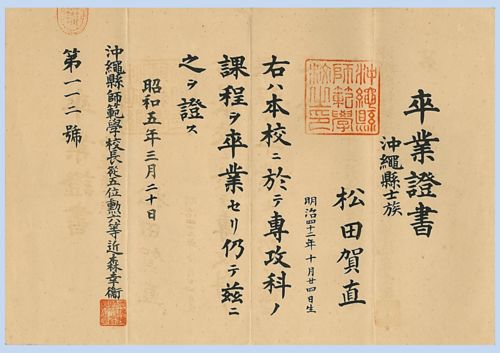 卒業證書
沖繩縣士族
松田賀直
明治四十二年十月廿四日生
右ハ本校ニ於テ專攻科ノ
課程ヲ卒業セリ仍テ茲ニ
之ヲ證ス
昭和五年三月二十日
沖繩縣師範學校長從五位勲六等近森幸衞
第一一二號
沖繩縣
師範學
校之印